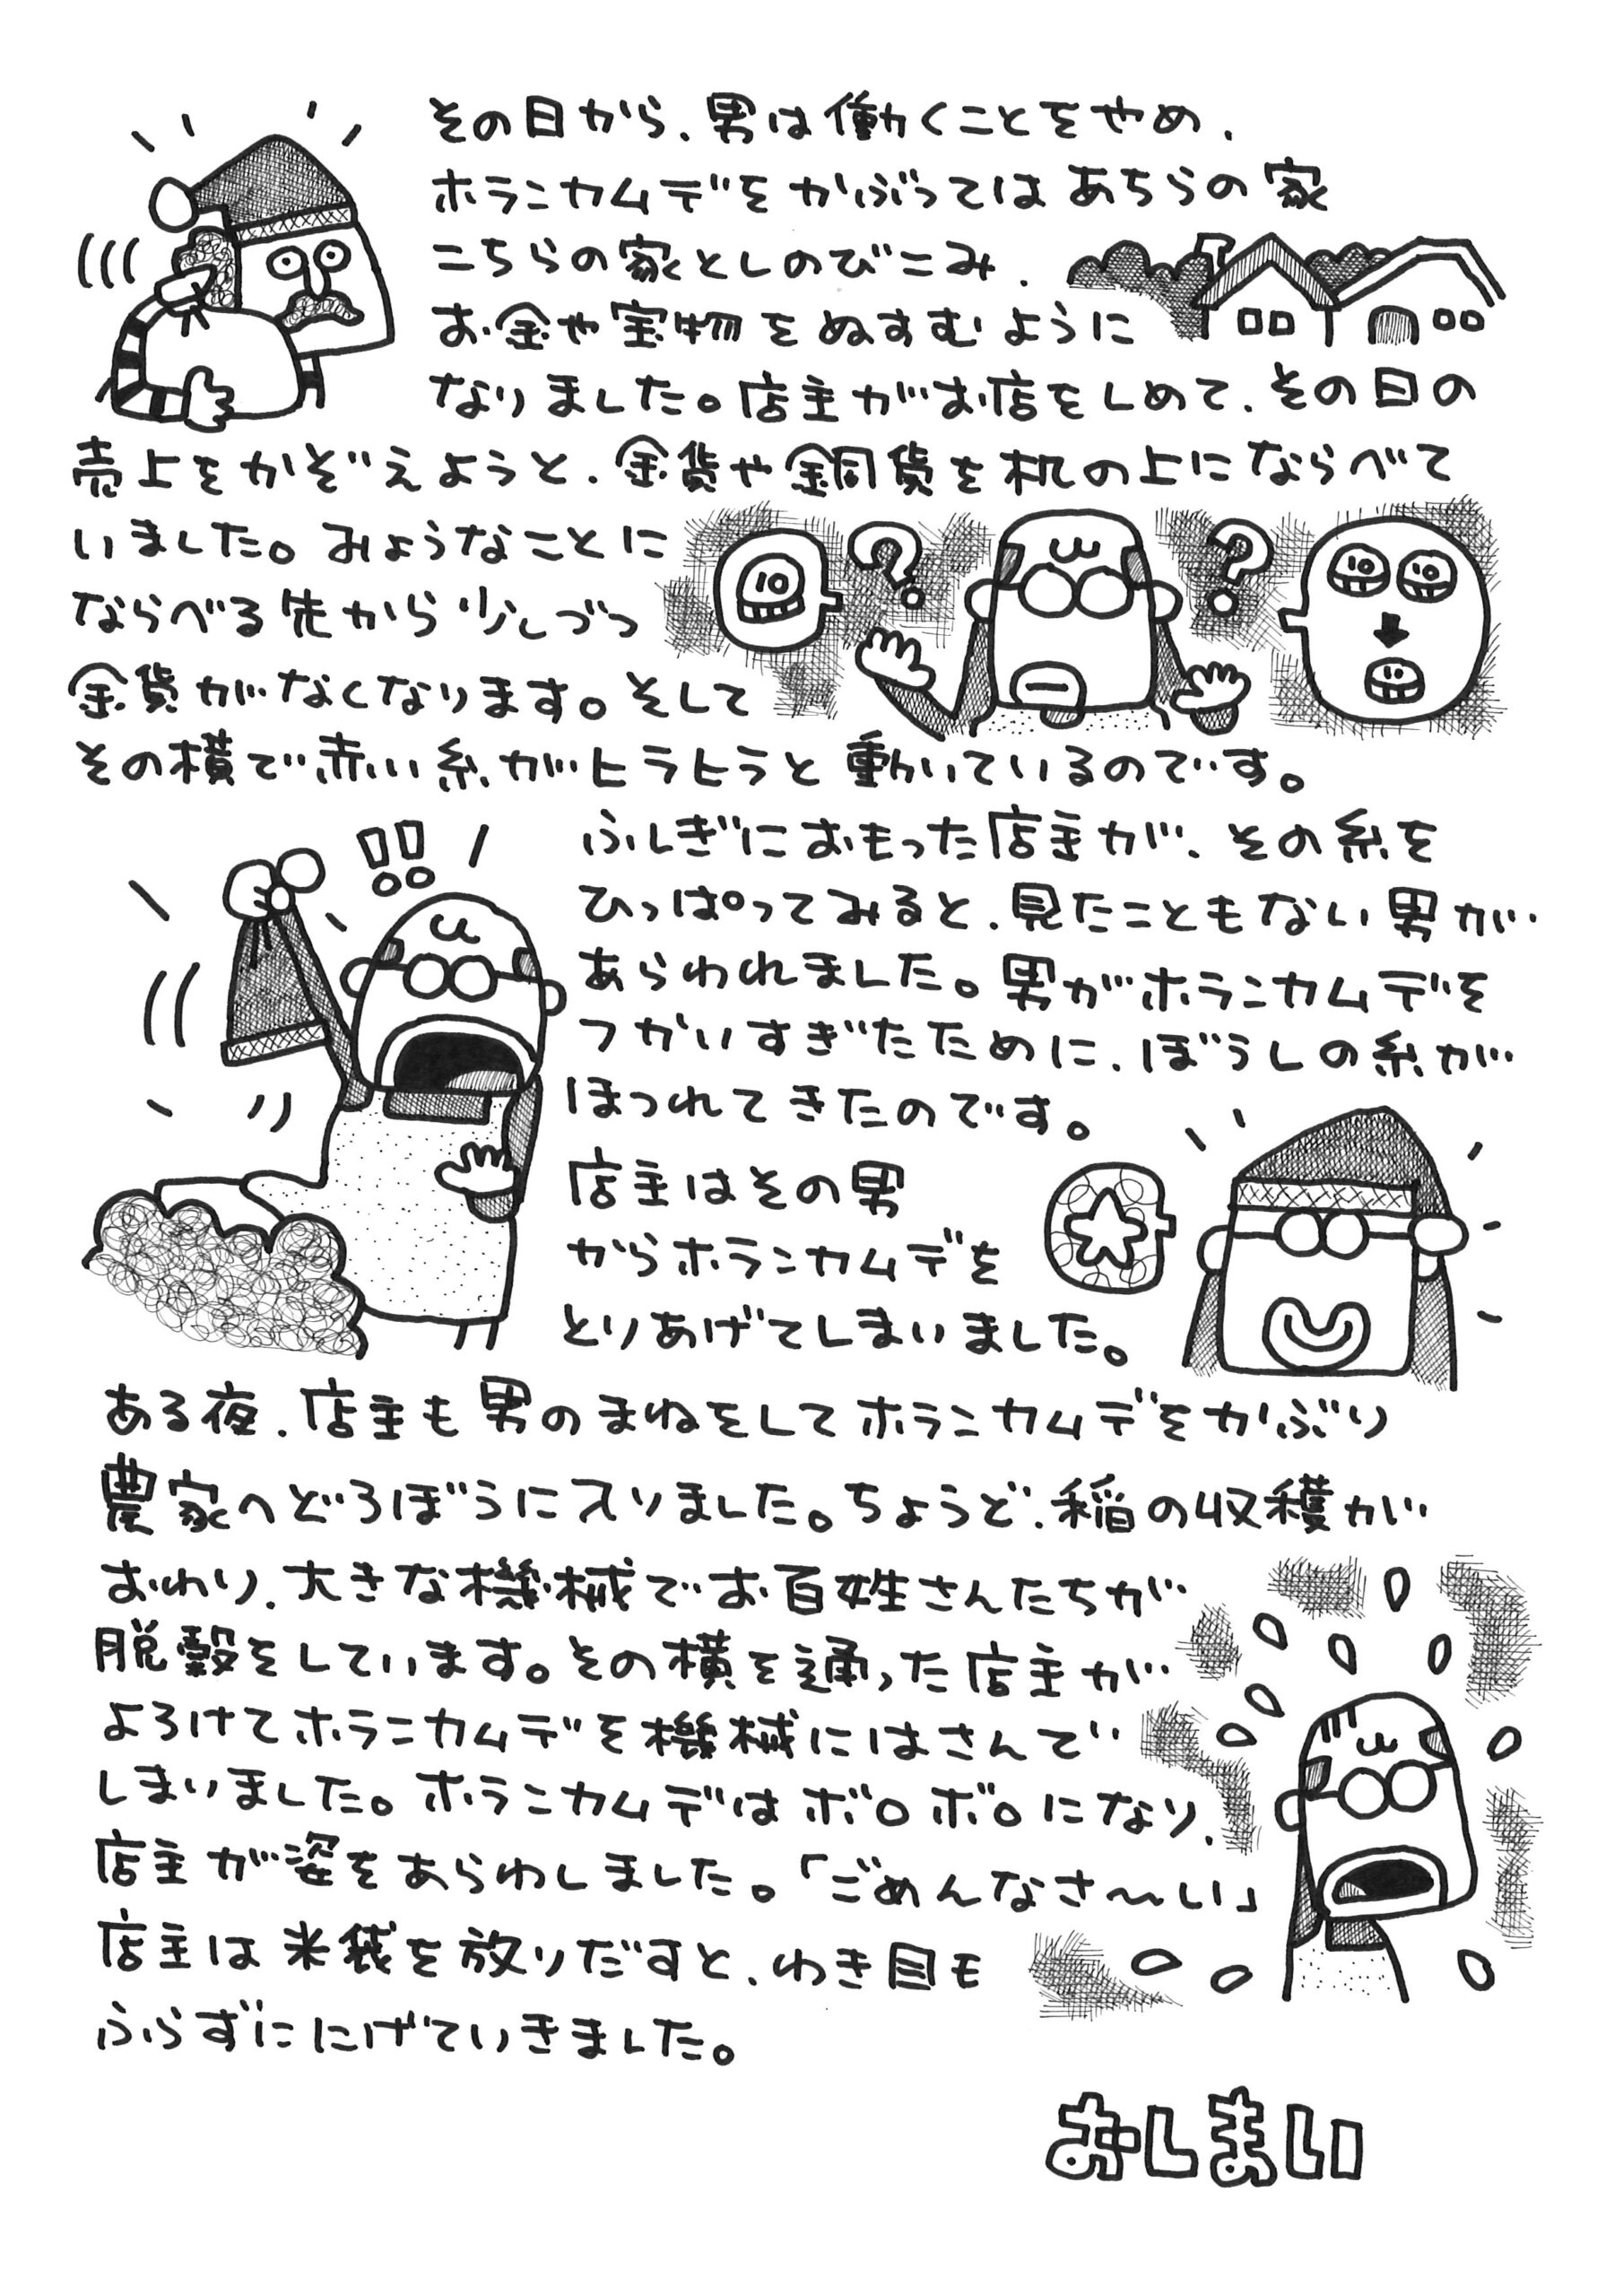 その日から、男は働くことをやめ、
ホランカムデをかぶってはあちらの家
こちらの家としのびこみ、
お金や宝物をぬすむように
なりました。店主がお店をしめて、その日の
売上をかぞえようと、金貨や銅貨を机の上にならべて
いました。みょうなことに
ならべる先から少しづつ
金貨がなくなります。そして
その横で赤い糸がヒラヒラと動いているのです。
ふしぎにおもった店主が、その糸を
ひっぱってみると、見たこともない男が
あらわれました。男がホランカムデを
つかいすぎたために、ぼうしの糸が
ほつれてきたのです。
店主はその男
からホランカムデを
とりあげてしまいました。
ある夜、店主も男のまねをしてホランカムデをかぶり
農家へどろぼうに入りました。ちょうど、稲の収穫が
おわり、大きな機械でお百姓さんたちが
脱穀をしています。その横を通った店主が
よろけてホランカムデを機械にはさんで
しまいました。ホランカムデはボロボロになり、
店主が姿をあらわしました。「ごめんなさ〜い」
店主は米袋を放りだすと、わき目も
ふらずににげていきました。
おしまい